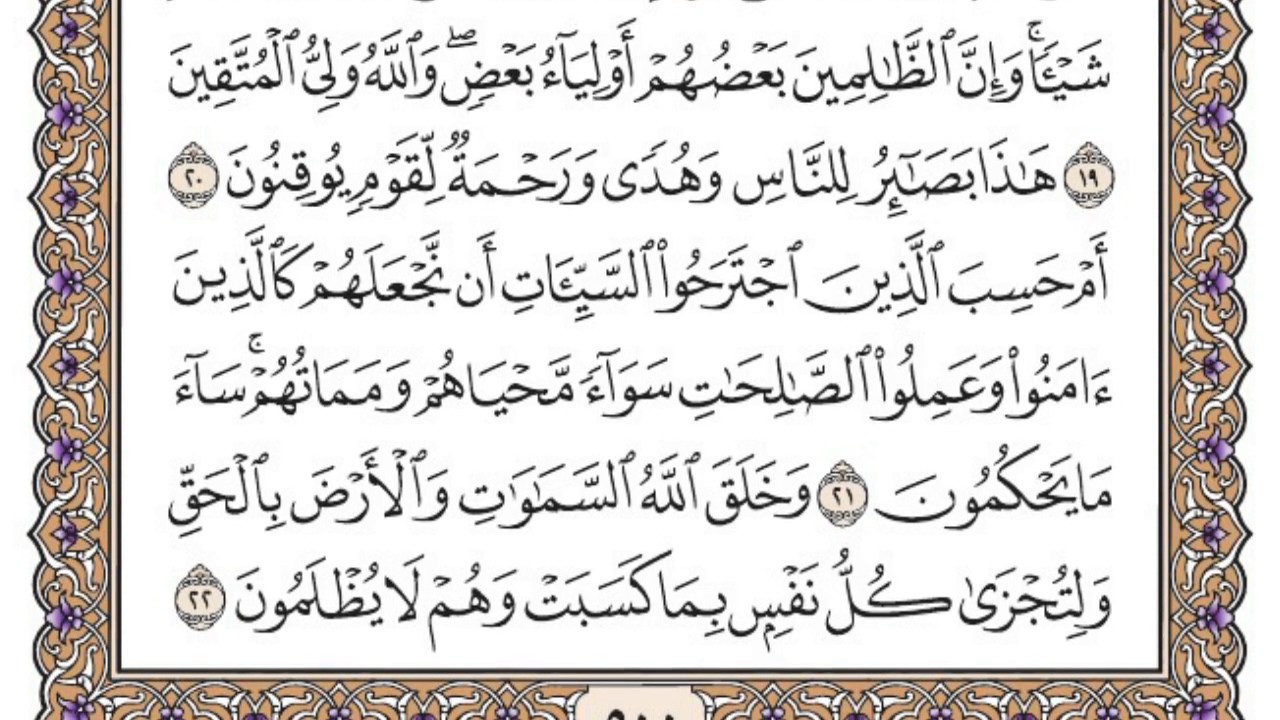 شَيْـًٔاۚ وَإِنَّ ٱلظَّـٰلِمِينَ بَعْضُهُمْ أَوْلِيَآءُ بَعْضٍۖ وَٱللَّهُ وَلِىُّ ٱلْمُتَّقِينَ
١٩ هَـٰذَا بَصَـٰٓئِرُ لِلنَّاسِ وَهُدًى وَرَحْمَةٌ لِّقَوْمٍ يُوقِنُونَ ٢٠
أَمْ حَسِبَ ٱلَّذِينَ ٱجْتَرَحُوا۟ ٱلسَّيِّـَٔاتِ أَن نَّجْعَلَهُمْ كَٱلَّذِينَ
ءَامَنُوا۟ وَعَمِلُوا۟ ٱلصَّـٰلِحَـٰتِ سَوَآءً مَّحْيَاهُمْ وَمَمَاتُهُمْۚ سَآءَ
مَا يَحْكُمُونَ ٢١ وَخَلَقَ ٱللَّهُ ٱلسَّمَـٰوَٰتِ وَٱلْأَرْضَ بِٱلْحَقِّ
وَلِتُجْزَىٰ كُلُّ نَفْسٍۭ بِمَا كَسَبَتْ وَهُمْ لَا يُظْلَمُونَ ٢٢